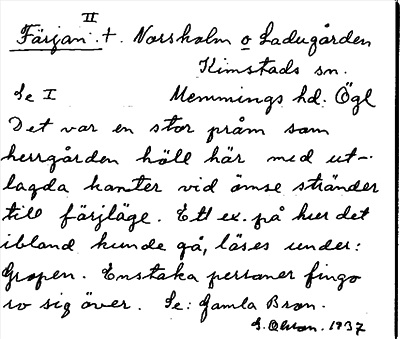 II
Färjan. †. Norsholm o Ladugården
Kimstads sn.
Se I Memmings hd. Ögl
Det var en stor pråm som
herrgården höll här med ut-
lagda kanter vid ömse stränder
till färjläge. Ett ex. på hur det
ibland kunde gå, läses under:
Gropen. Enstaka personer fingo
ro sig över. Se: Gamla Bron.
1937